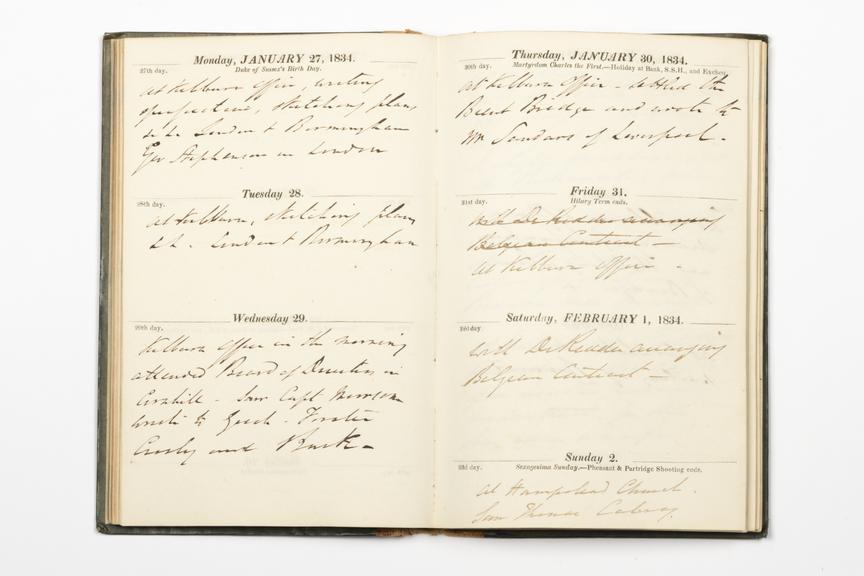 Monday, JANUARY 27, 1834.
27th day.
Duke of Sussex's Birth Day.
at Kilburn office, writing
specifications, sketching plans
London & Birmingham
Geo Stephenson in London
Tuesday 28.
28th day.
at Kilburn, sketching plans
London & Birmingham
Wednesday 29.
29th day.
Kilburn office in the morning
attended Board of Directors in
Cornhill - saw Capt
wrote to Gooch - Forster
and
Thursday, JANUARY 30, 1834.
30th day.
Martyrdom Charles the First.—Holiday at Bank, S.S.H., and Excheq.
at Kilburn office - settled the
Brent Bridge and wrote to
Mr Sandars of Liverpool -
Friday 31.
31st day.
Hilary Term ends.
with De Ridder arranging
Belgian Contract —
at Kilburn office -
Saturday, FEBRUARY 1, 1834.
32d day
With De Ridder arranging
Belgian Contract —
Sunday 2.
33d day.
Sexagesima Sunday.—Pheasant & Partridge Shooting ends.
at Hampstead Church.
Saw Thomas